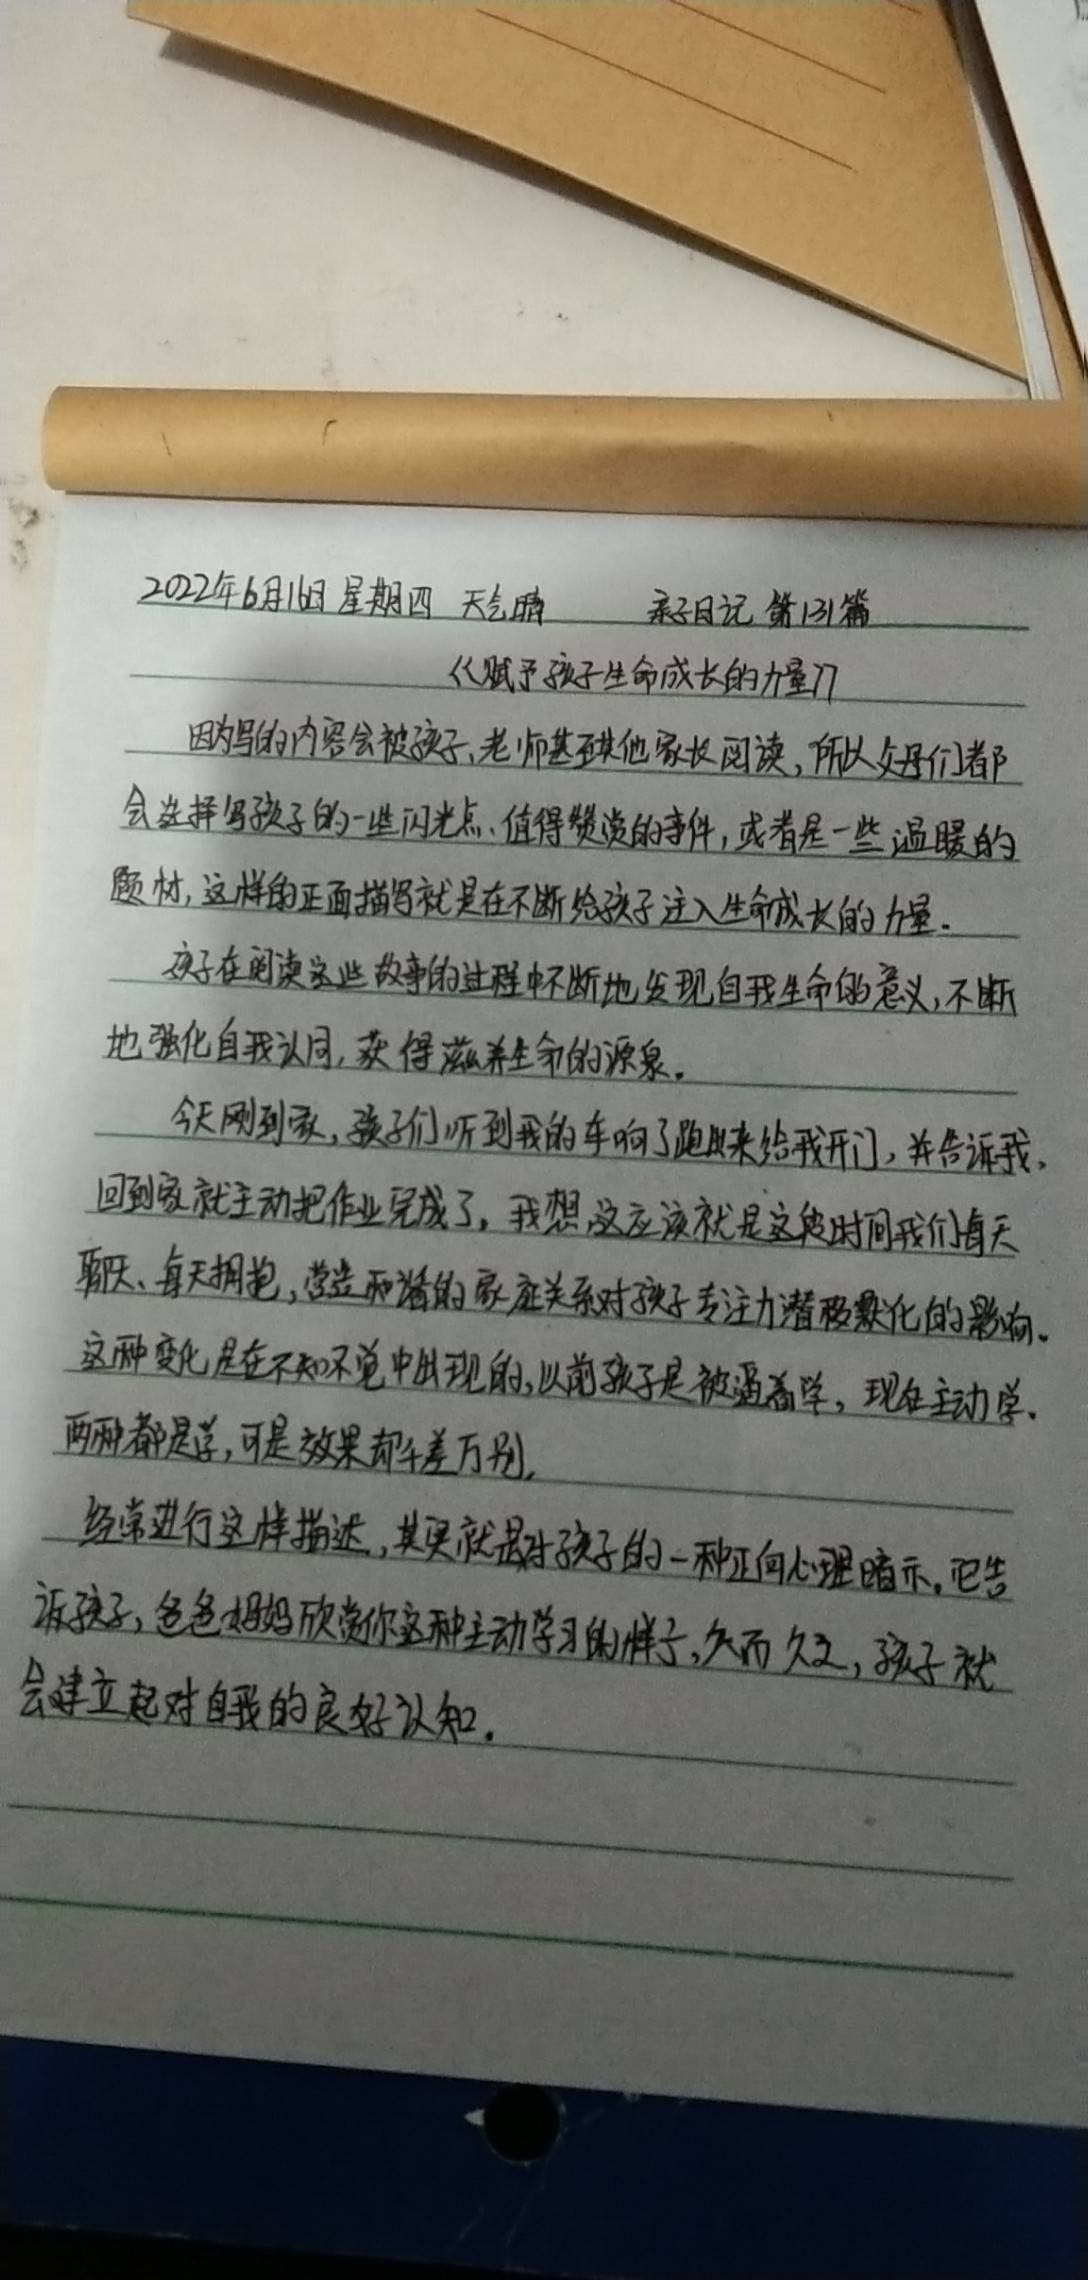 2022年6月16日 星期四 天气晴 亲子日记 第131篇
《赋予孩子生命成长的力量》
因为写的内容会被孩子、老师甚至其他家长阅读，所以父母们都
会选择写孩子的一些闪光点、值得赞赏的事件，或者是一些温暖的
题材，这样的正面描写就是在不断给孩子注入生命成长的力量。
孩子在阅读这些故事的过程中不断地发现自我生命的意义，不断
地强化自我认同，获得滋养生命的源泉。
今天刚到家，孩子们听到我的车响了跑出来给我开门，并告诉我，
回到家就主动把作业完成了。我想这应该就是这段时间我们每天
聊天、每天拥抱，营造和谐的家庭关系对孩子专注力潜移默化的影响。
这种变化是在不知不觉中出现的，以前孩子是被逼着学，现在主动学。
两种都是学，可是效果却千差万别。
经常进行这样描述，其实就是对孩子的一种正向心理暗示。它告
诉孩子，爸爸妈妈欣赏你这种主动学习的样子，久而久之，孩子就
会建立起对自我的良好认知。